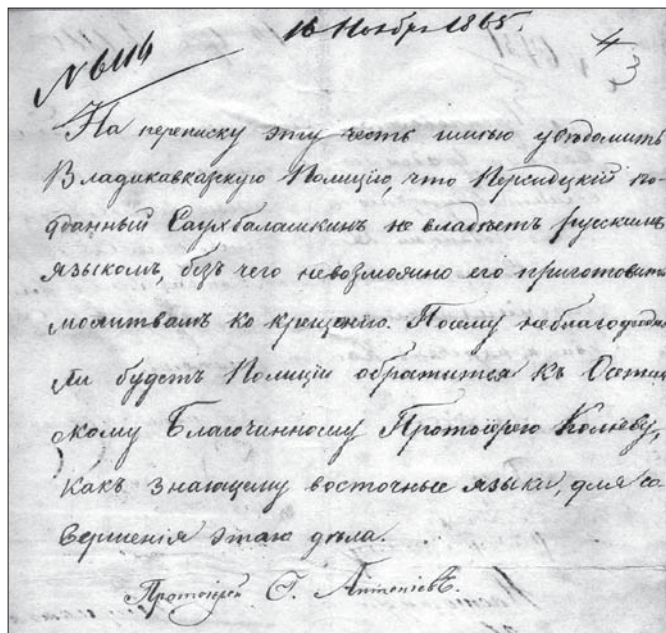 16 Ноября 1865.
N 6116
На переписку эту честь имею уведомить
Владикавказскую Полицію, что Персидскій по-
данный Саурхбалашкинъ не владѣетъ русскимъ
языкомъ, безъ чего невозможно его приготовить
молитвамъ ко крещенію. Посему неблагоугодно
ли будетъ Полиціи обратится къ Осетин
скому Благочинному Протоіерею Колиеву,
какъ знающему восточные языки, для со
вершенія этаго дѣла.
Протоіерей